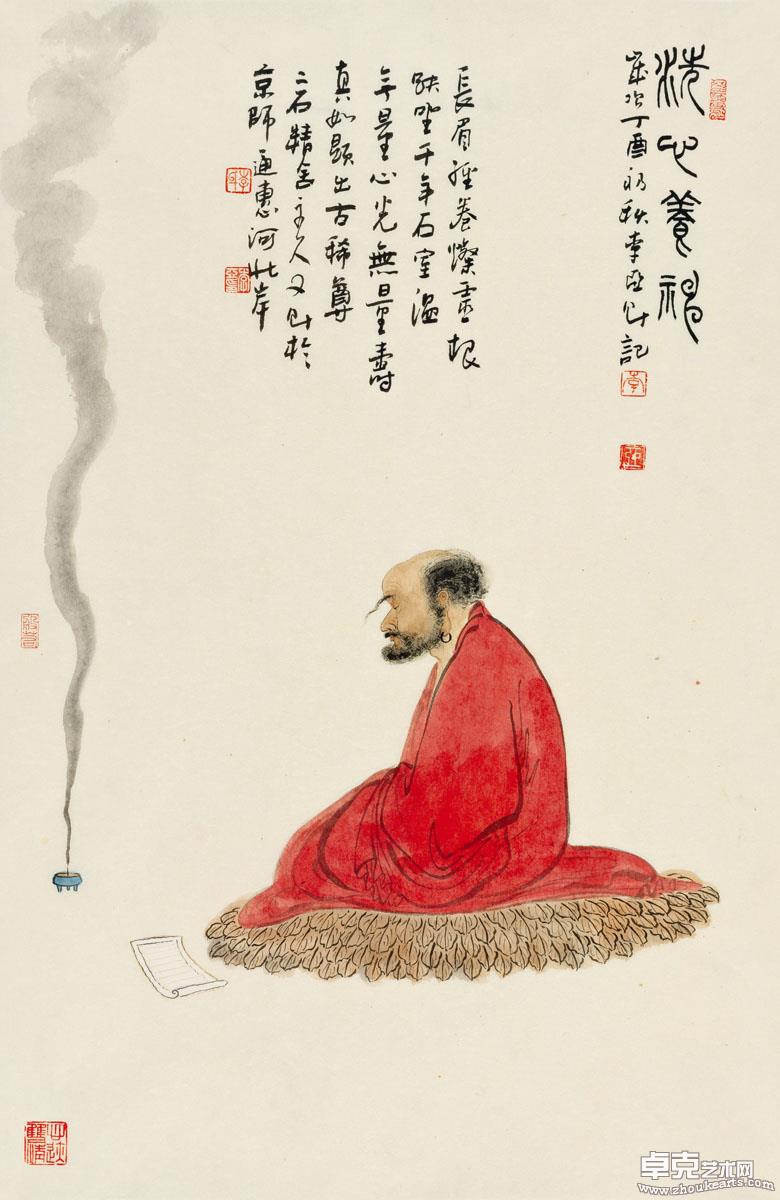 洗心養神
歲次丁酉初秋李亞記
長眉經卷燦靈根
趺坐千年石室溫
無量心光無量壽
真如顯出古稀尊
二石精舍主人又於
京師通惠河北岸
卓克艺术网
www.zhoukearts.com